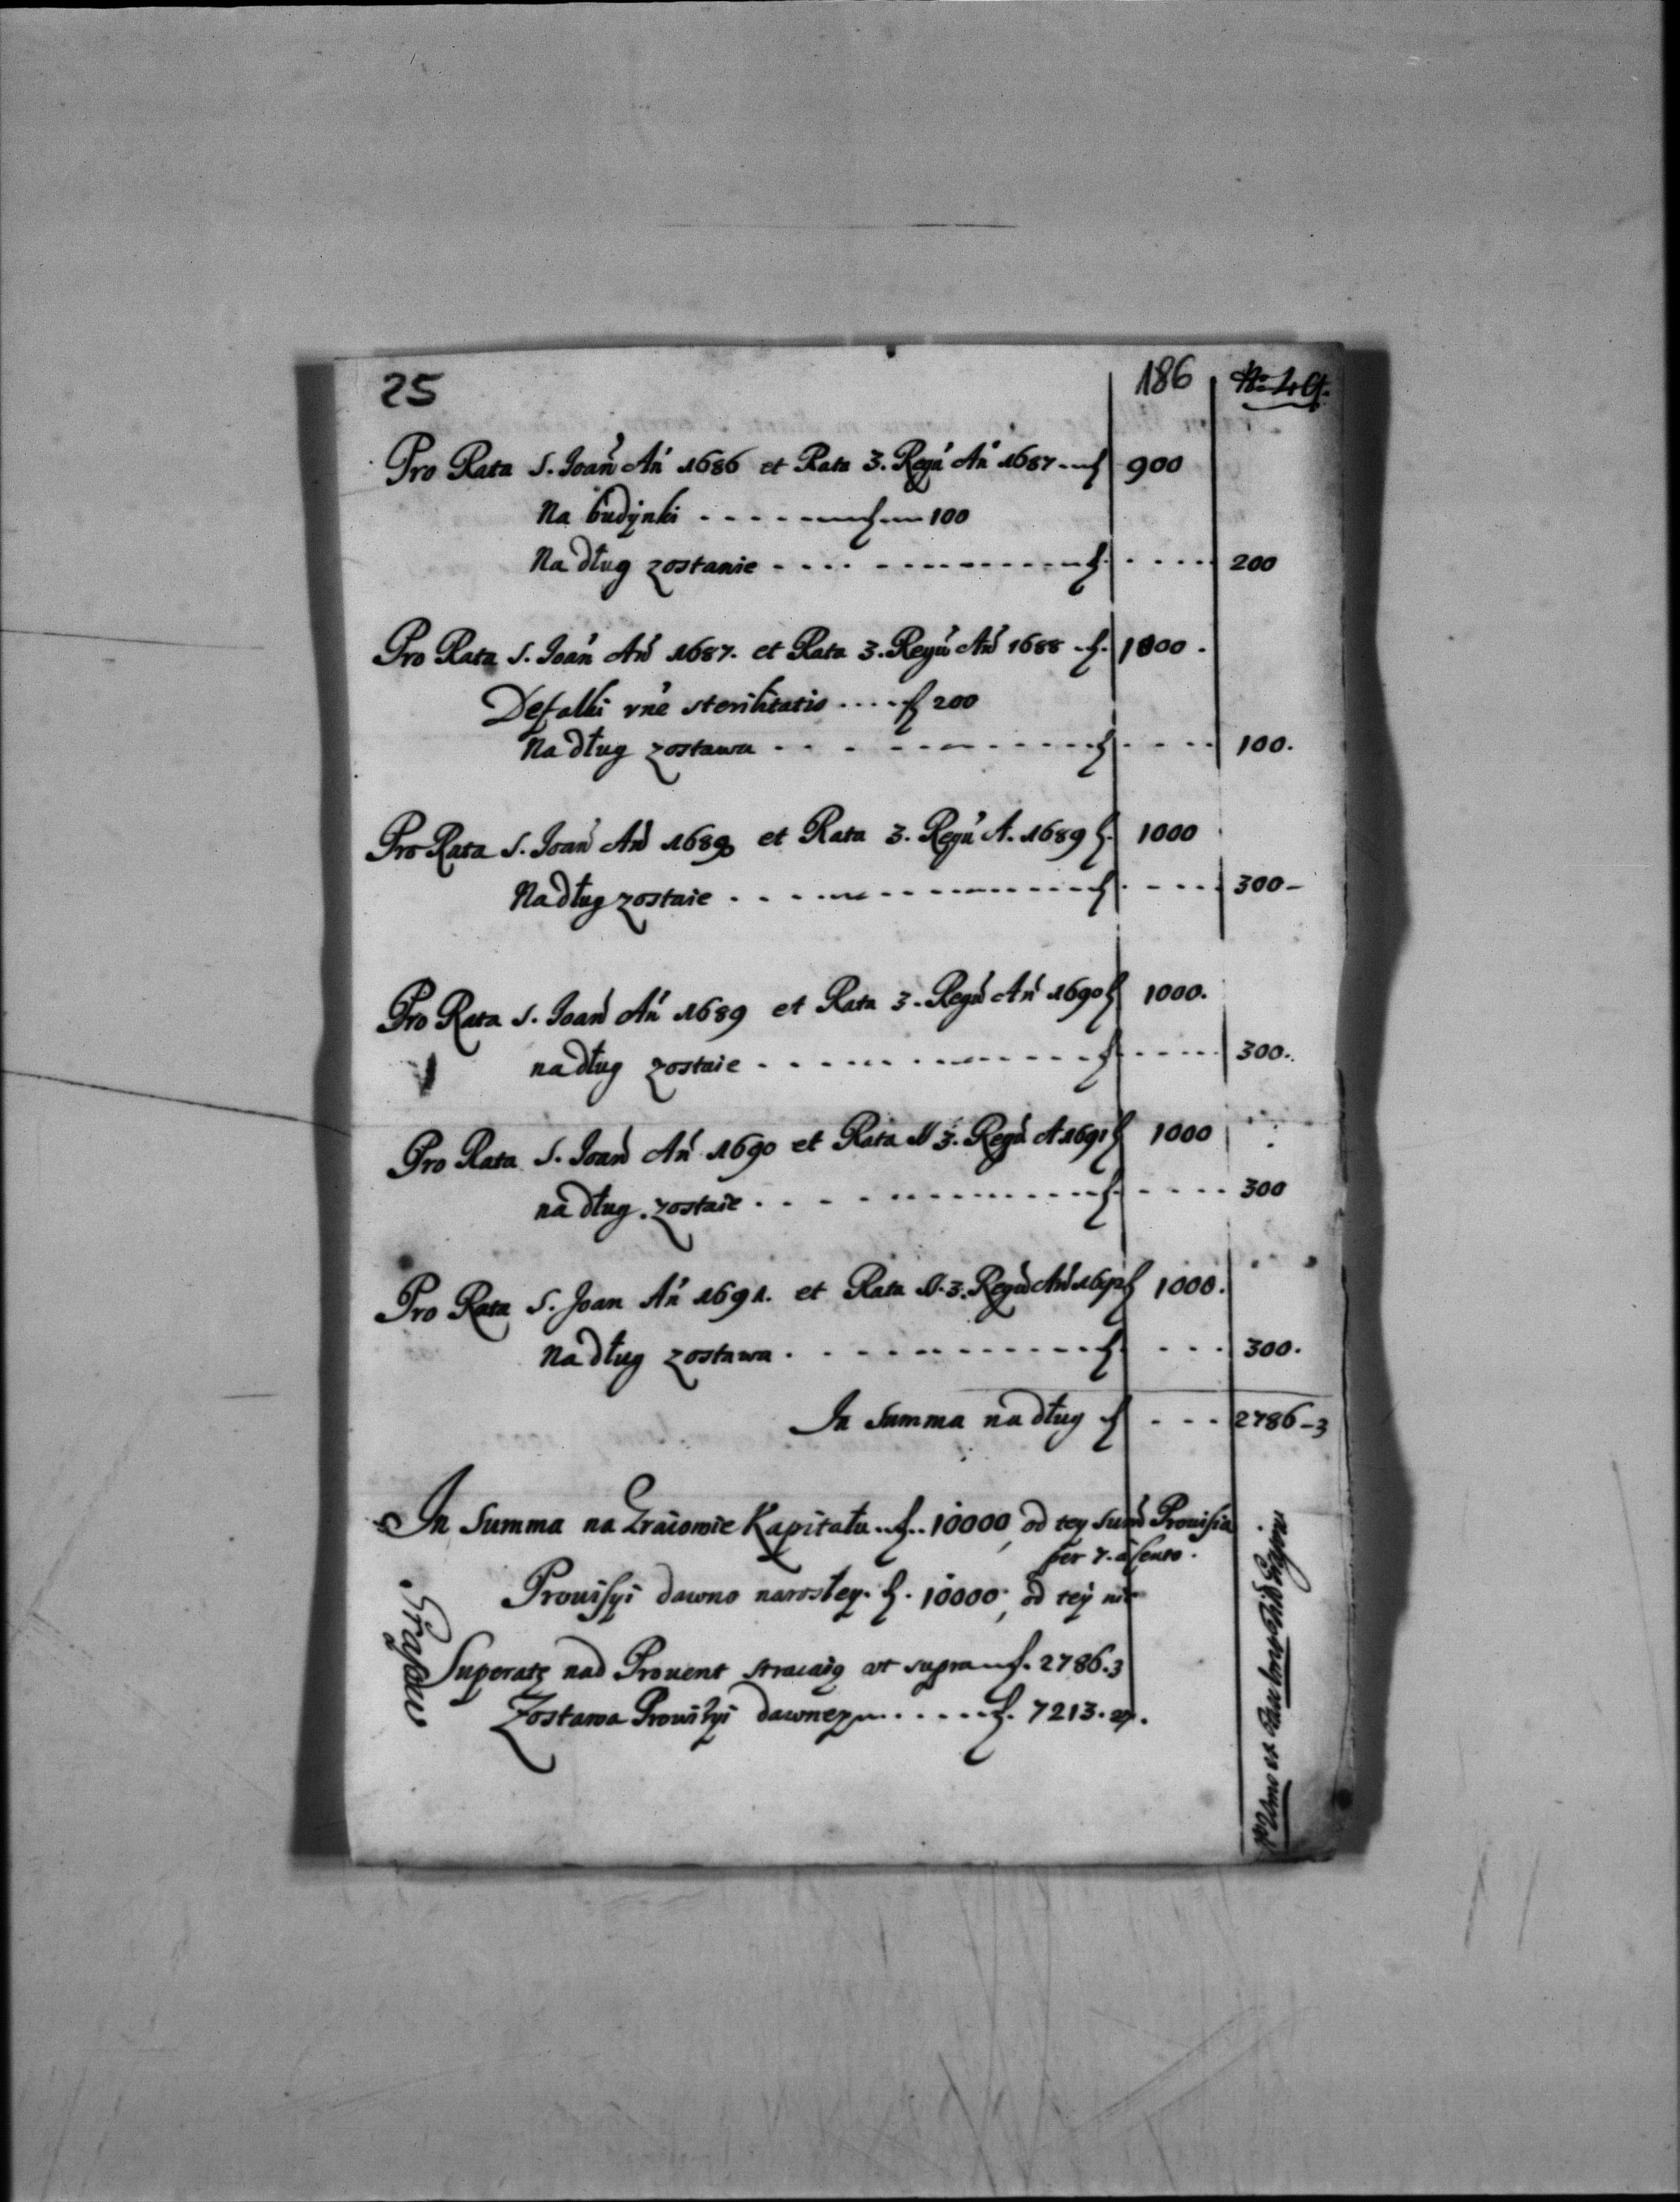 25 186
Pro Rata S. Joan̄ An̄ 1686 et Rata 3. Regū An̄ 1687 f 900
Na budynki f 100
Na dług zostanie f 200
Pro Rata S. Joan̄ An̄ 1687. et Rata 3. Regū An̄ 1688 f. 1000.
Defalki rn̄e sterilitatis f 200
Na dług zostawa f 100.
Pro Rata S. Joan̄ An̄ 1688 et Rata 3. Regū A. 1689 f. 1000
Na dług zostaie f 300-
Pro Rata S. Joan̄ An̄ 1689 et Rata 3. Regū An̄ 1690 f 1000.
na dług zostaie f 300.
Pro Rata S. Joan̄ An̄ 1690 et Rata 3. Regū A 1691 f 1000
na dług zostaie f 300
Pro Rata S. Joan An̄ 1691. et Rata 3. Regū An̄ 1692 f 1000.
Na dług zostawa f 300.
In Summa na dług f 2786-3
In Summa na Kapitału f. 10000, od tey Sum̄ Prouisia
per 7. a cento.
Prouisyi dawno narosłey. f. 10000; od tey nic
Superatę nad Prouent stracaią ut supra f. 2786.3
Zostawa Prouizyi dawney f. 7213. 27.